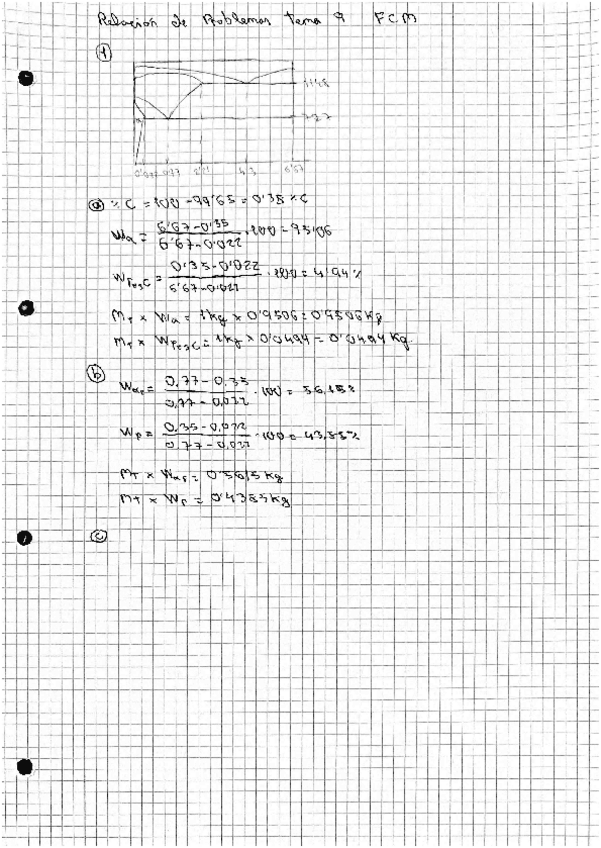 Relación de Problemas tema 9 FCM
①
1148
727
0'022 0'77 2'11 4'3 6'67
ⓐ % C = 100 - 99'65 = 0'35 % C
Wα = 6'67-0'35 / 6'67-0'022 · 100 = 95,06
WFe3C = 0'35-0'022 / 6'67-0'022 · 100 = 4'94 %
MT x Wα = 1kg x 0'9506 = 0'9506 kg
MT x WFe3C = 1kg x 0'0494 = 0'0494 Kg.
ⓑ
Wαp = 0,77-0,35 / 0,77-0,022 · 100 = 56,15%
Wp = 0,35-0,022 / 0,77-0,022 · 100 = 43,85%
MT x Wαp = 0'5615 kg
MT x Wp = 0'4385 kg
ⓒ